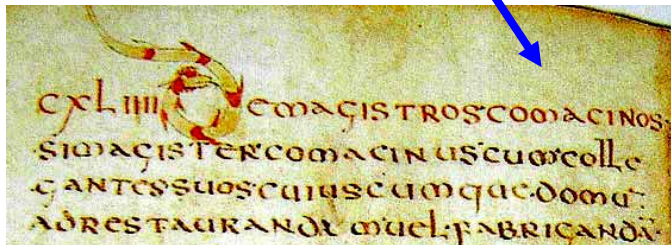 CXLIIII DEMAGISTROS COMACINOS.
SIMAGISTER COMACINUS CUM COLLE
GANTES SUOS CUIUSCUMQUE DOMU
AD RESTAURANDA M UEL FABRICANDA